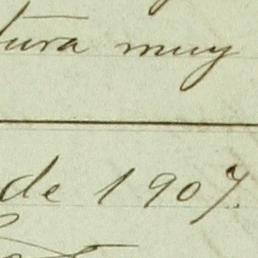 tura muy
de 1907.